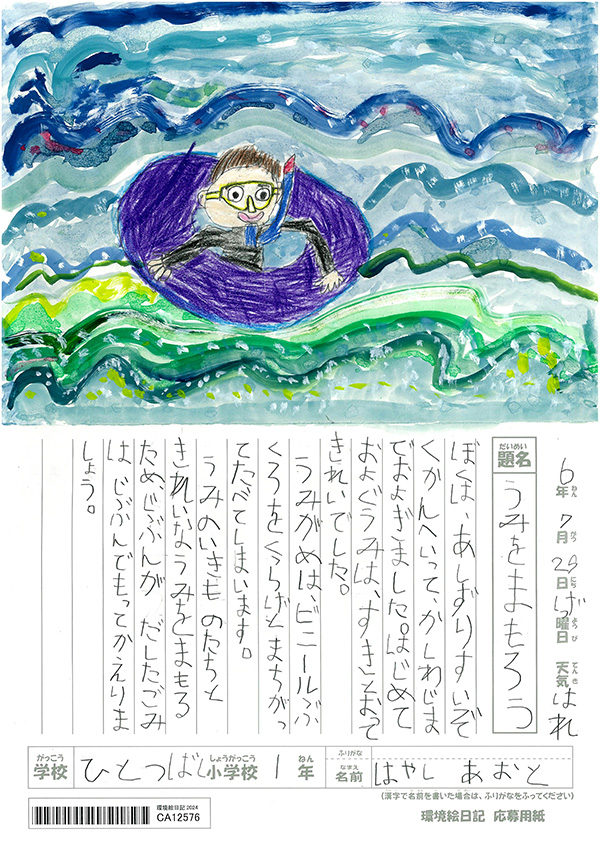 6年 7月 29日 げつ曜日 天気 はれ
ねん がつ にち ようび てんき
だいめい
題名 うみをまもろう
ぼくは、あしずりすいぞ
くかんへいって、かしわじま
でおよぎました。はじめて
およぐうみは、すきとおて
きれいでした。
うみがめは、ビニールぶ
くろをくらげとまちがっ
てたべてしまいます。
うみのいきものたちと
きれいなうみをまもる
ためじぶんが だしたごみ
は じぶんでもってかえりま
しょう。
がっこう しょうがっこう ねん ふりがな
学校 ひとつばし小学校 1年 なまえ 名前 はやし あおと
(漢字で名前を書いた場合は、ふりがなをふってください)
環境絵日記 2024
CA12576
環境絵日記 応募用紙